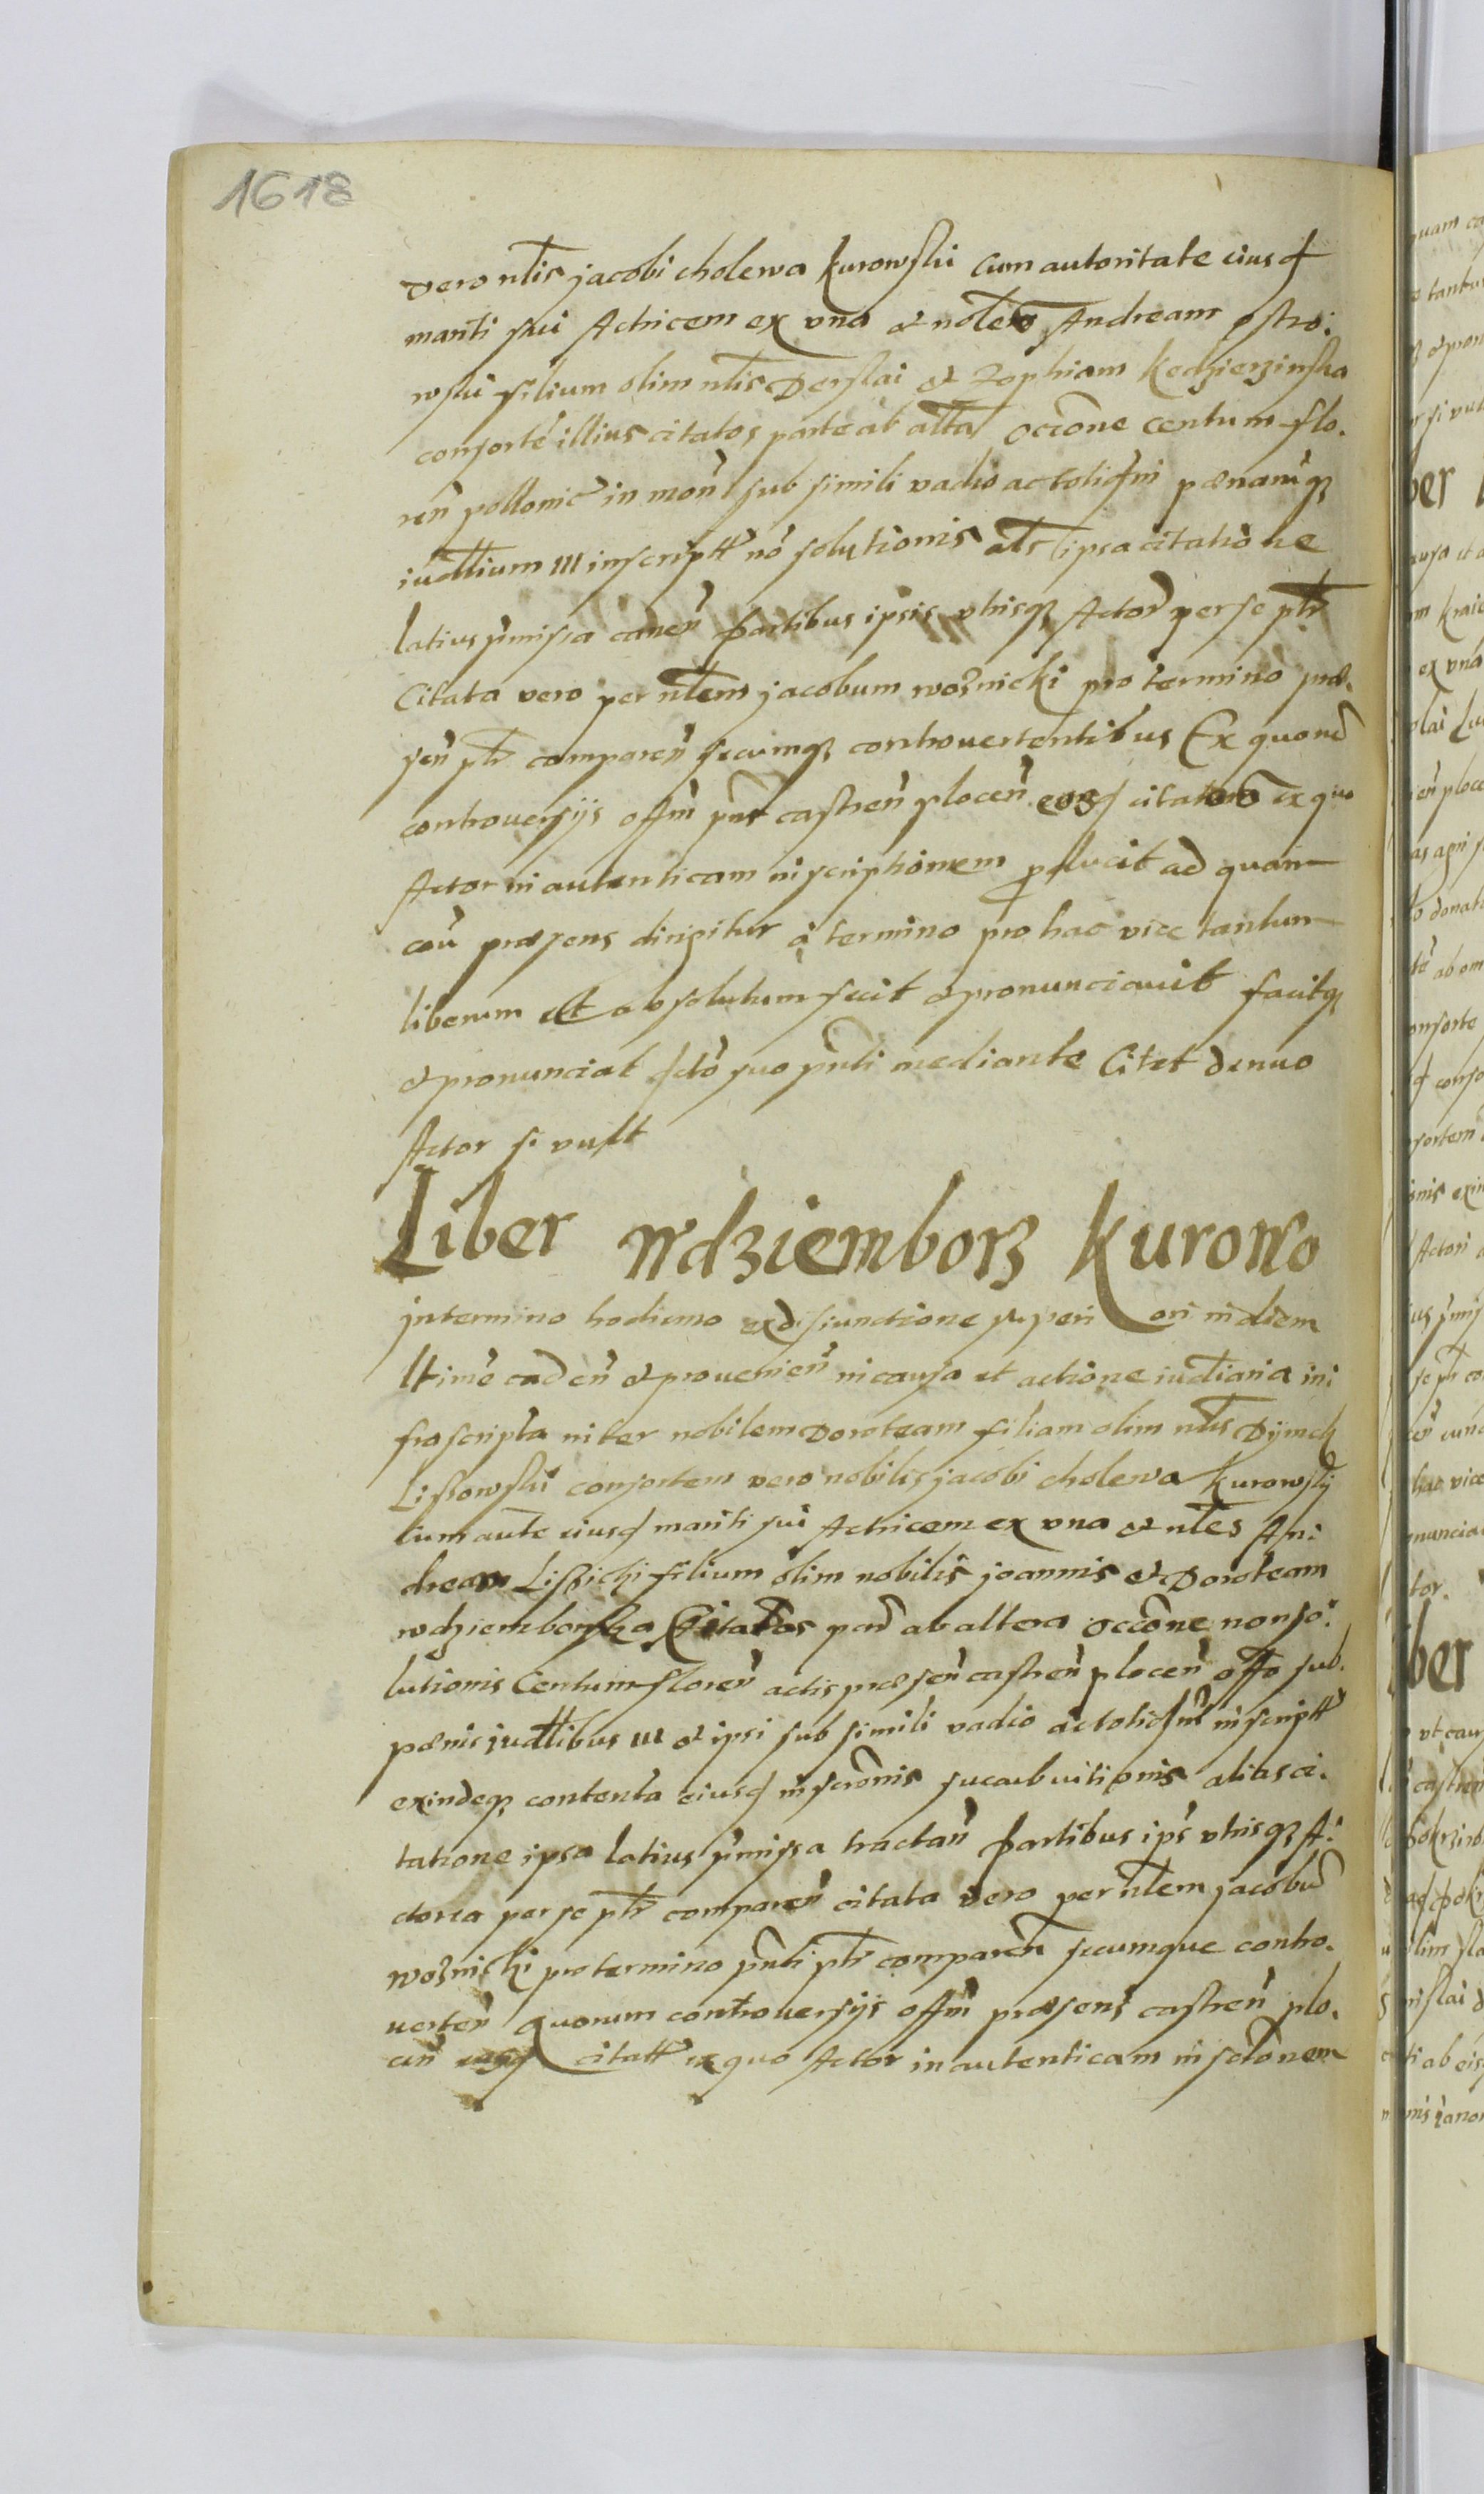 1618
vero nlis jacobi cholewa kurowski Cum autoritate eiusd
mariti sui Actricem ex una et noles Andream ostro:
wski filium olim nlis Derslai et Zophiam kedzierzinska
consorte illius citatos parte ab alta occone centum flo.
ren pollonic in mon sub simili vadio ac tolid pœnarumq
iudtlium III inscriptt no solutionis als ipsa citatione
latius pmissa canen partibus ipsis utrisq Actor per se ptr
Citata vero per nlem jacobum woznicki pro termino præ.
sen ptr comparen secumq controvertentibus Ex quorud
controversijs offm pns castren plocen eosd citatos ex quo
Actor in autenticam inscriptionem producit ad quam
cau præsens dirigitur a termino pro hac vice tantum
liberum et absolutum fecit et pronunciavit facitq
et pronunciat scto suo pnti mediante Citet denuo
Actor si vult
Liber wdziemborz kurowo
jn termino hodierno ex disiunctione superiori in diem
ltime caden et provenien in causa et actione iudtiaria in:
frascripta inter nobilem Doroteam filiam olim nlis
Lissowski consortem vero nobilis jacobi cholewa kurowskj
cum aute eiusd mariti sui Actricem ex una et nles An:
dream filium olim nobilis joannis et Doroteam
wdziemborska Citatos pard ab altera occone non so:
lutionis Centum floren actis præsen castren plocen offo sub.
pœnis judtlibus III et ipsi sub simili vadio ac inscriptt
exindeq contenta eiusd inscronis alias ci.
tatione ipsa latius pmissa tractan partibus ips utrisq A:
ctorea per se ptr comparen citata vero per nlem jacobu
woznicki pro termino pnti ptr comparen secumque contro.
verten quorum controversijs offm præsens castren plo.
cen eosd citatt ex quo Actor in autenticam inscronem